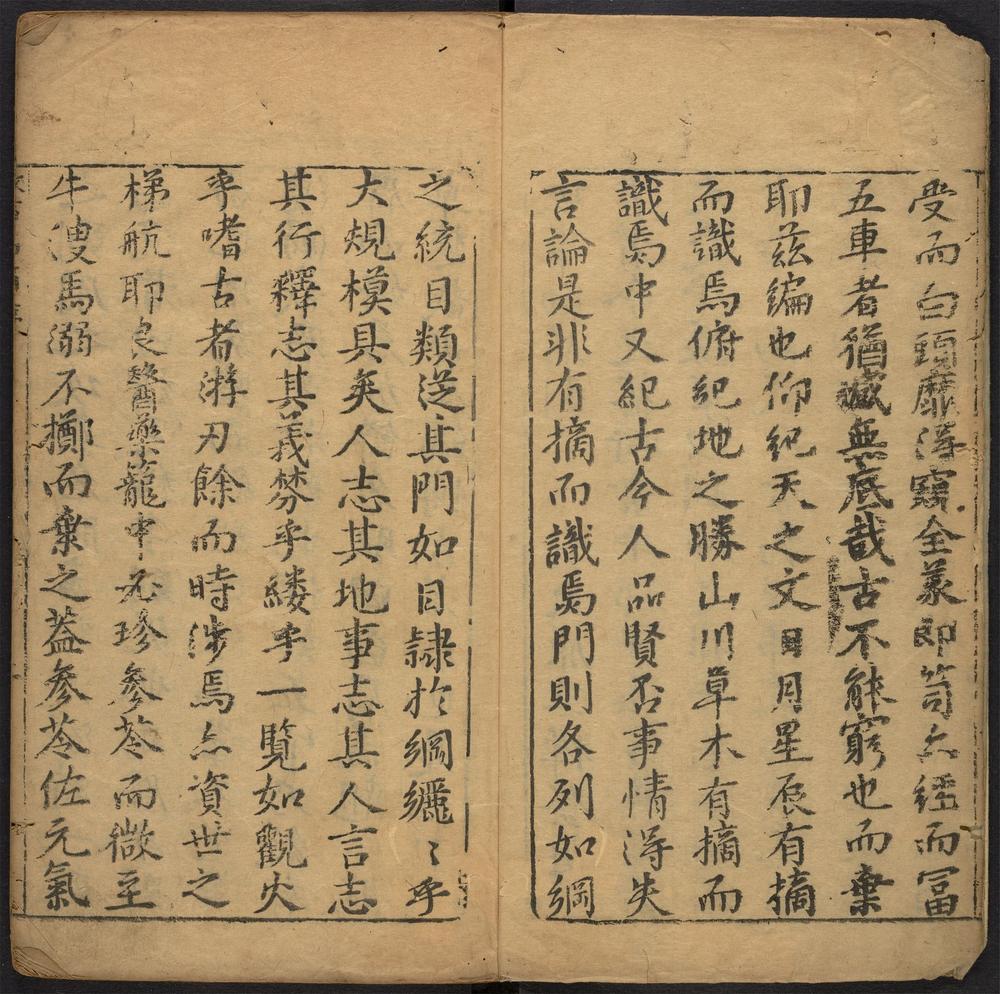 受而白頭靡得窺全豕即笥亦經而冨
五車者猶慽無底哉古不能窮也而棄
耶茲編也仰紀天之文日月星辰有摘
而識焉俯紀地之勝山川草木有摘而
識焉中又紀古今人品賢否事情得失
言論是非有摘而識焉門則各列如綱
之統目類從其門如目隷於綱纚〻乎
大規模具矣人志其地事志其人言志
其行釋志其義棼乎縷乎一覽如觀火
乎嗜古者游刃餘而時涉焉亦資世之
梯航耶良醫藥籠中不珍參苓而微至
牛溲馬溺不擲而棄之葢參苓佐元氣